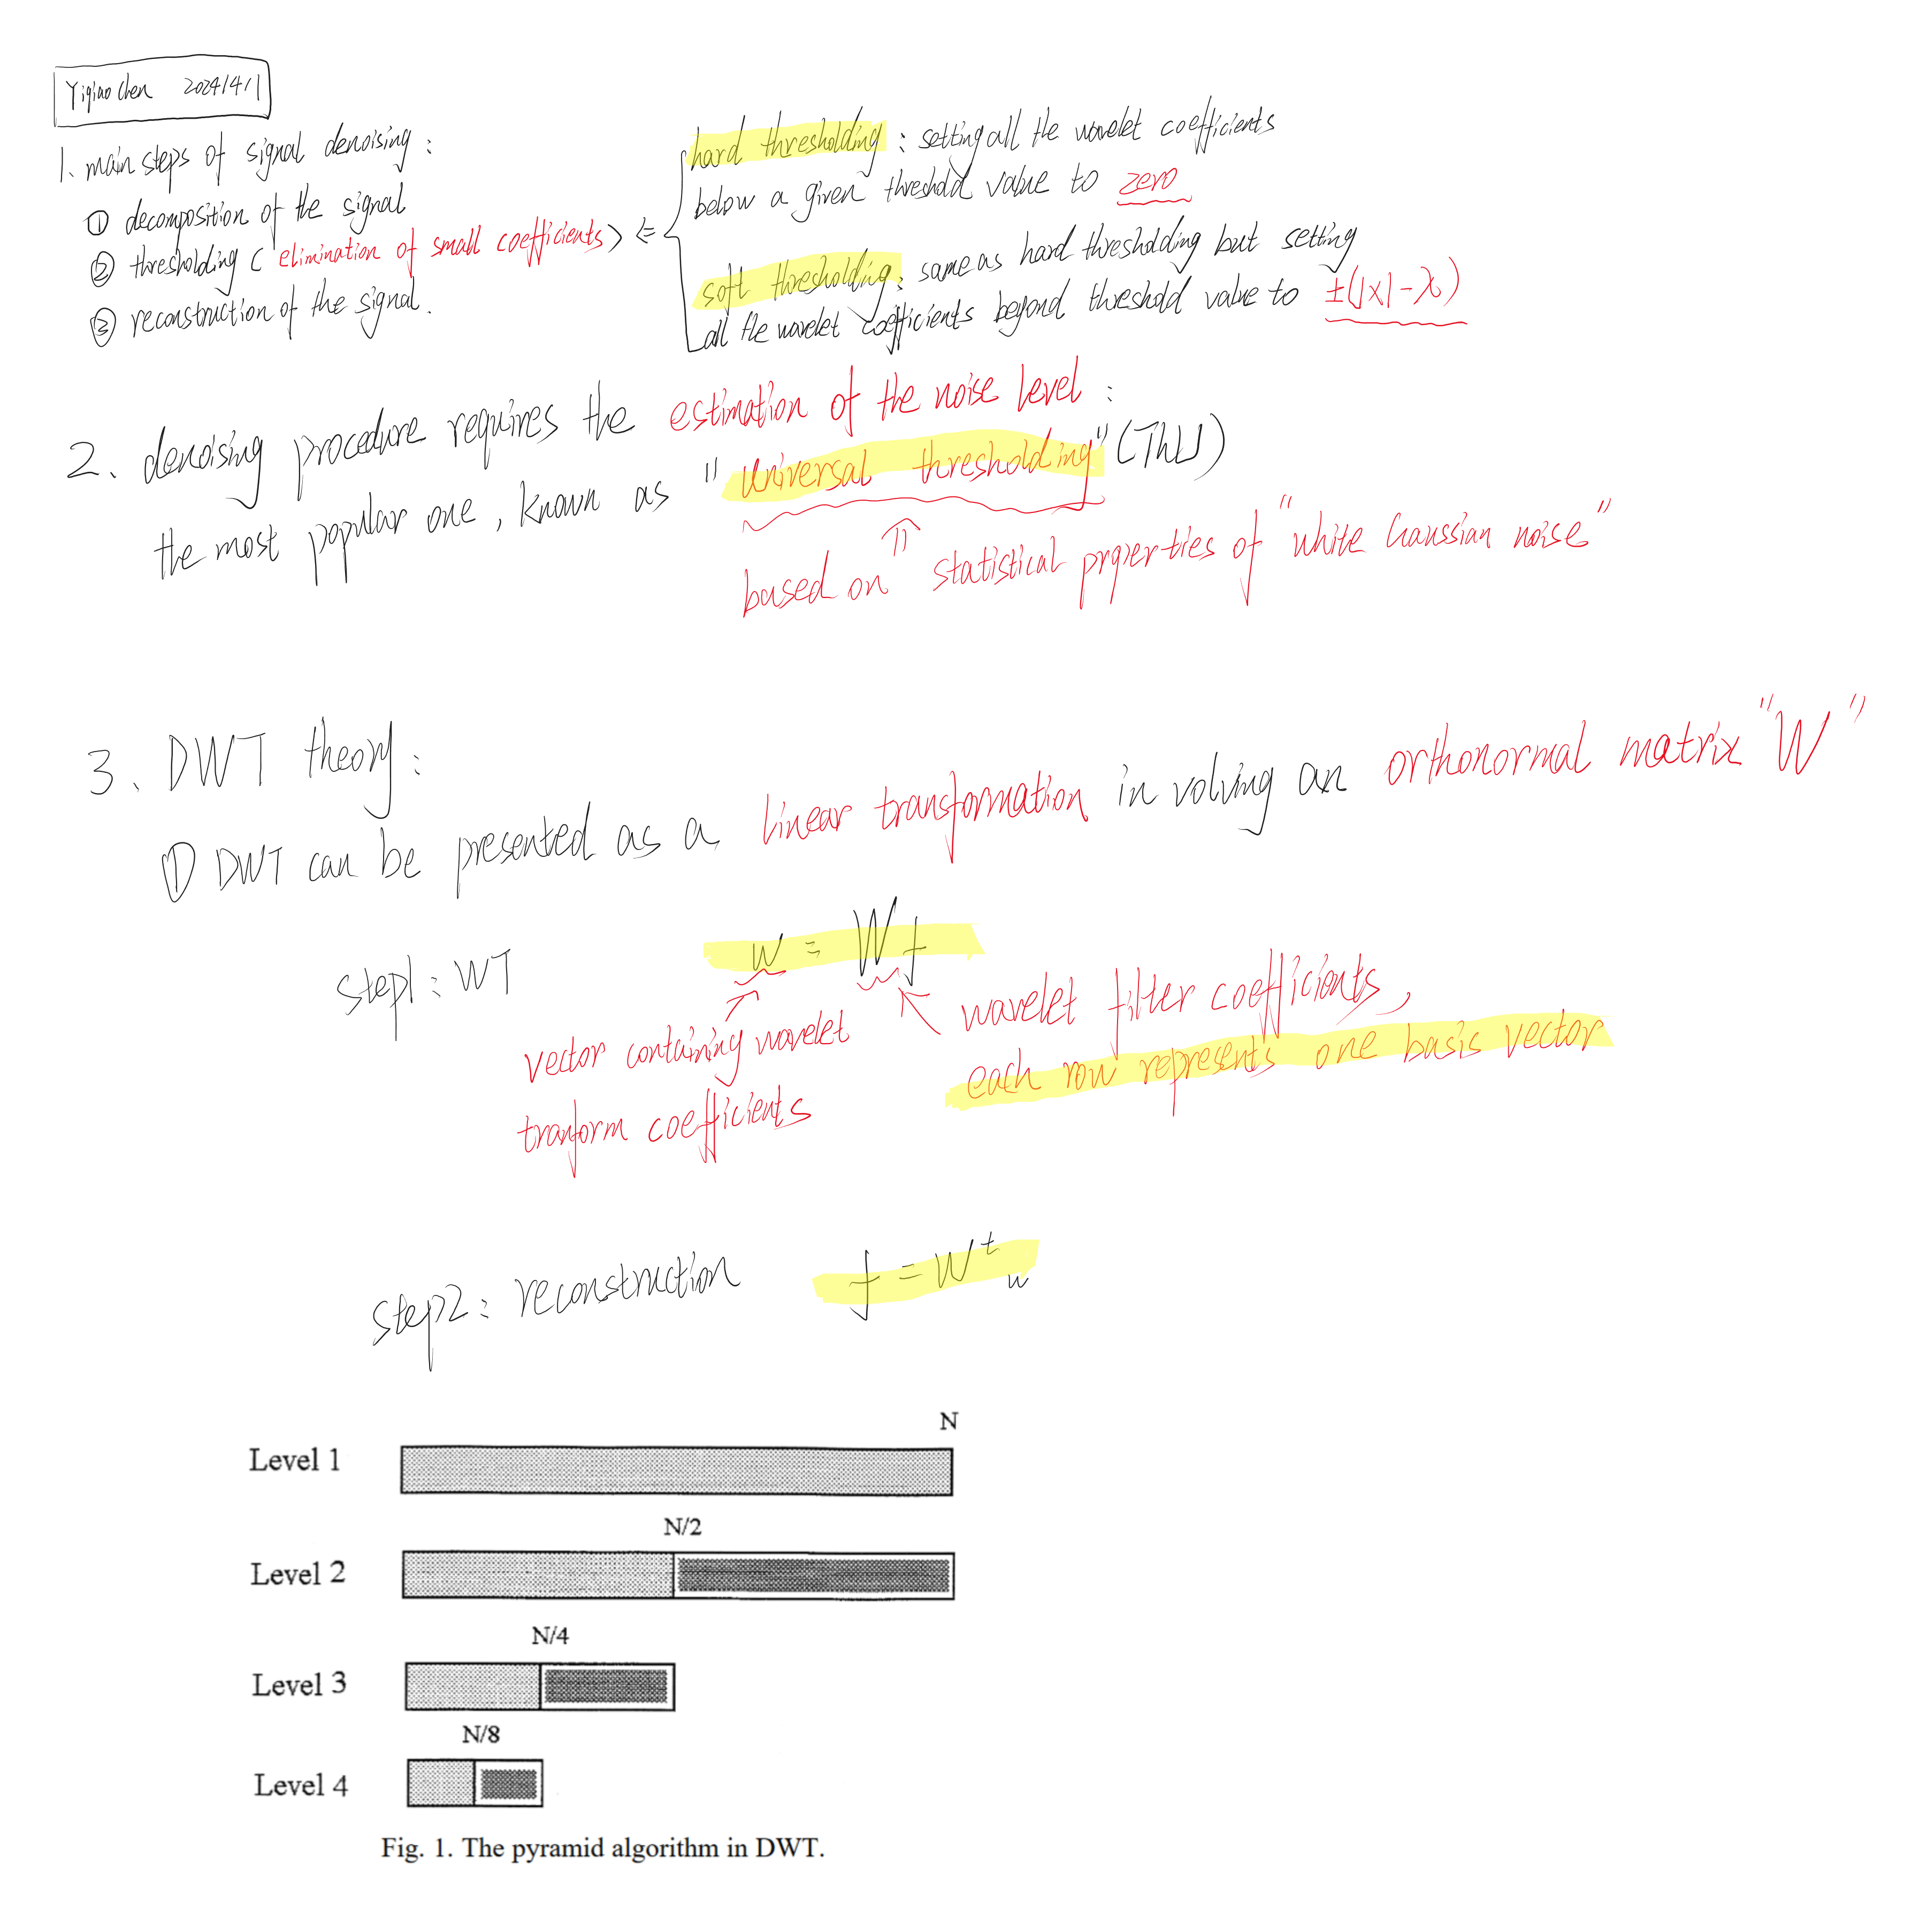 Yiqiao Chen 2024/4/1
1. main steps of signal denoising :
① decomposition of the signal
② thresholding ( elimination of small coefficients) ⇐
③ reconstruction of the signal.
hard thresholding : setting all the wavelet coefficients
below a given threshold value to zero
soft thresholding : same as hard thresholding but setting
all the wavelet coefficients beyond threshold value to ±(|x|-λ)
2. denoising procedure requires the estimation of the noise level :
the most popular one, known as "universal thresholding" (ThU)
⇑
based on statistical properties of "white Gaussian noise"
3. DWT theory :
① DWT can be presented as a linear transformation involving an orthonormal matrix "W"
step1: WT w = Wf
vector containing wavelet
tranform coefficients
wavelet filter coefficients,
each row represents one basis vector
step2: reconstruction f = Wᵗw
N
Level 1
N/2
Level 2
N/4
Level 3
N/8
Level 4
Fig. 1. The pyramid algorithm in DWT.